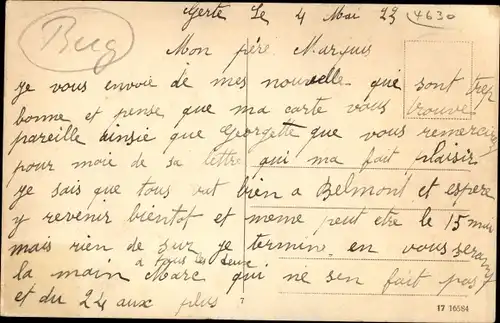 Gerte Le 4 Mai 23 4630
Bug
Mon père Marquis
je vous envoie de mes nouvelle qui sont trez
bonne et pense que ma carte vous trouve
pareille ainsie que Georgette que vous remercirez
pour moie de sa lettre qui ma fait plaisir
je sais que tous vat bien a Belmont et espere
y revenir bientot et meme peut etre le 15 mai
mais rien de sur je termine en vous serang
la main a tous les deux Marc qui ne sen fait pas
et du 24 aux plus
7
17 16584